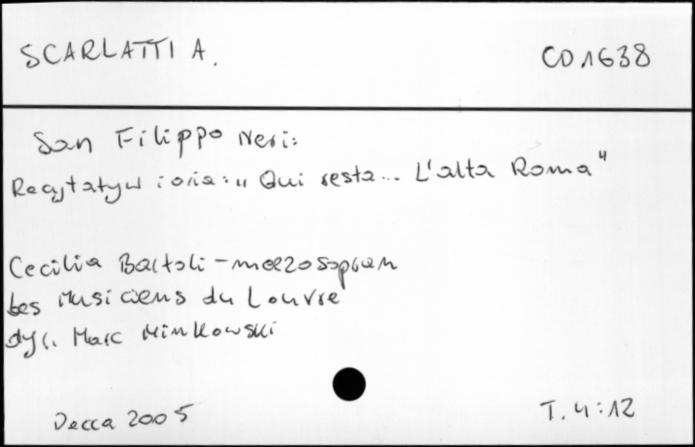 SCARLATTI A.
CD 1638
San Filippo Neri:
Recytatyw i aria: „Qui resta... L'alta Roma"
Cecilia Bartoli - mezzosopran
Les Musiciens du Louvre
dyr. Marc Minkowski
Decca 2005
T. 4:12